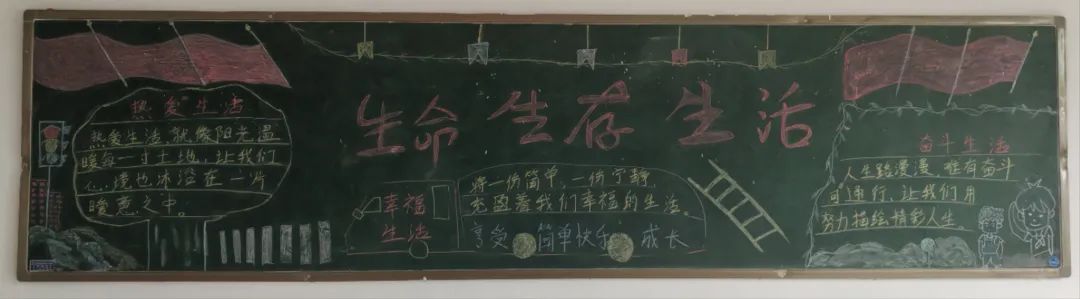 热爱生活
热爱生活,就像阳光温
暖每一寸土地,让我们
心境也沐浴在一片
暖意之中。
生命 生存 生活
幸福
生活
将一份简单,一份宁静
充盈着我们幸福的生活。
享受 简单快乐 成长
奋斗生活
人生路漫漫,唯有奋斗
可通行,让我们用
努力描绘精彩人生。